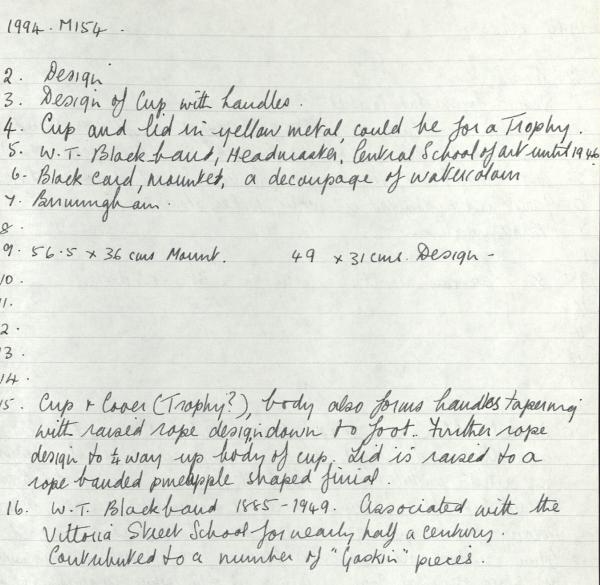 1994. M154.
2. Design
3. Design of Cup with handles.
4. Cup and lid in yellow metal, could be for a Trophy.
5. W.T. Blackband, Headmaster, Central School of art until 1946
6. Black card, mounted, a decoupage of watercolour
7. Birmingham.
8.
9. 56.5 x 36 cms Mount. 49 x 31 cms. Design -
10.
11.
2.
13.
14.
15. Cup + Cover (Trophy?), body also forms handles tapering
with raised rope design down to foot. Further rope
design to ¼ way up body of cup. Lid is raised to a
rope banded pineapple shaped finial.
16. W.T. Blackband 1885-1949. Associated with the
Vittoria Street School for nearly half a century.
Contributed to a number of "Gaskin" pieces.